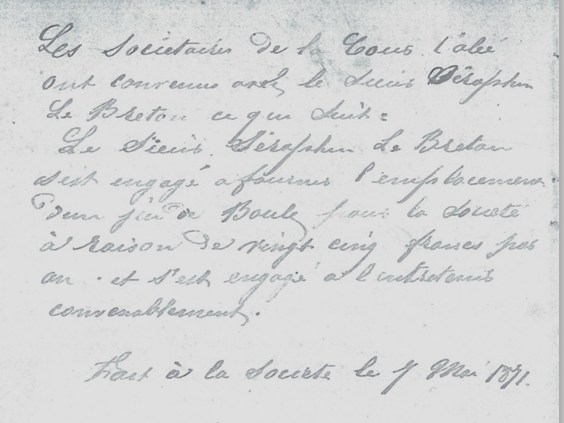 Les Sociétaires de la Cour l'abé
ont convenus avec le sieur Séraphin
Le Breton ce qui suit :
Le Sieur Séraphin Le Breton
s'est engagé a fournir l'emplacement
d'un jeu de Boule pour la Société
à raison de vingt cinq francs par
an. et s'est engagé a l'entretenir
convenablement.
Fait à la Société le 7 Mai 1871.